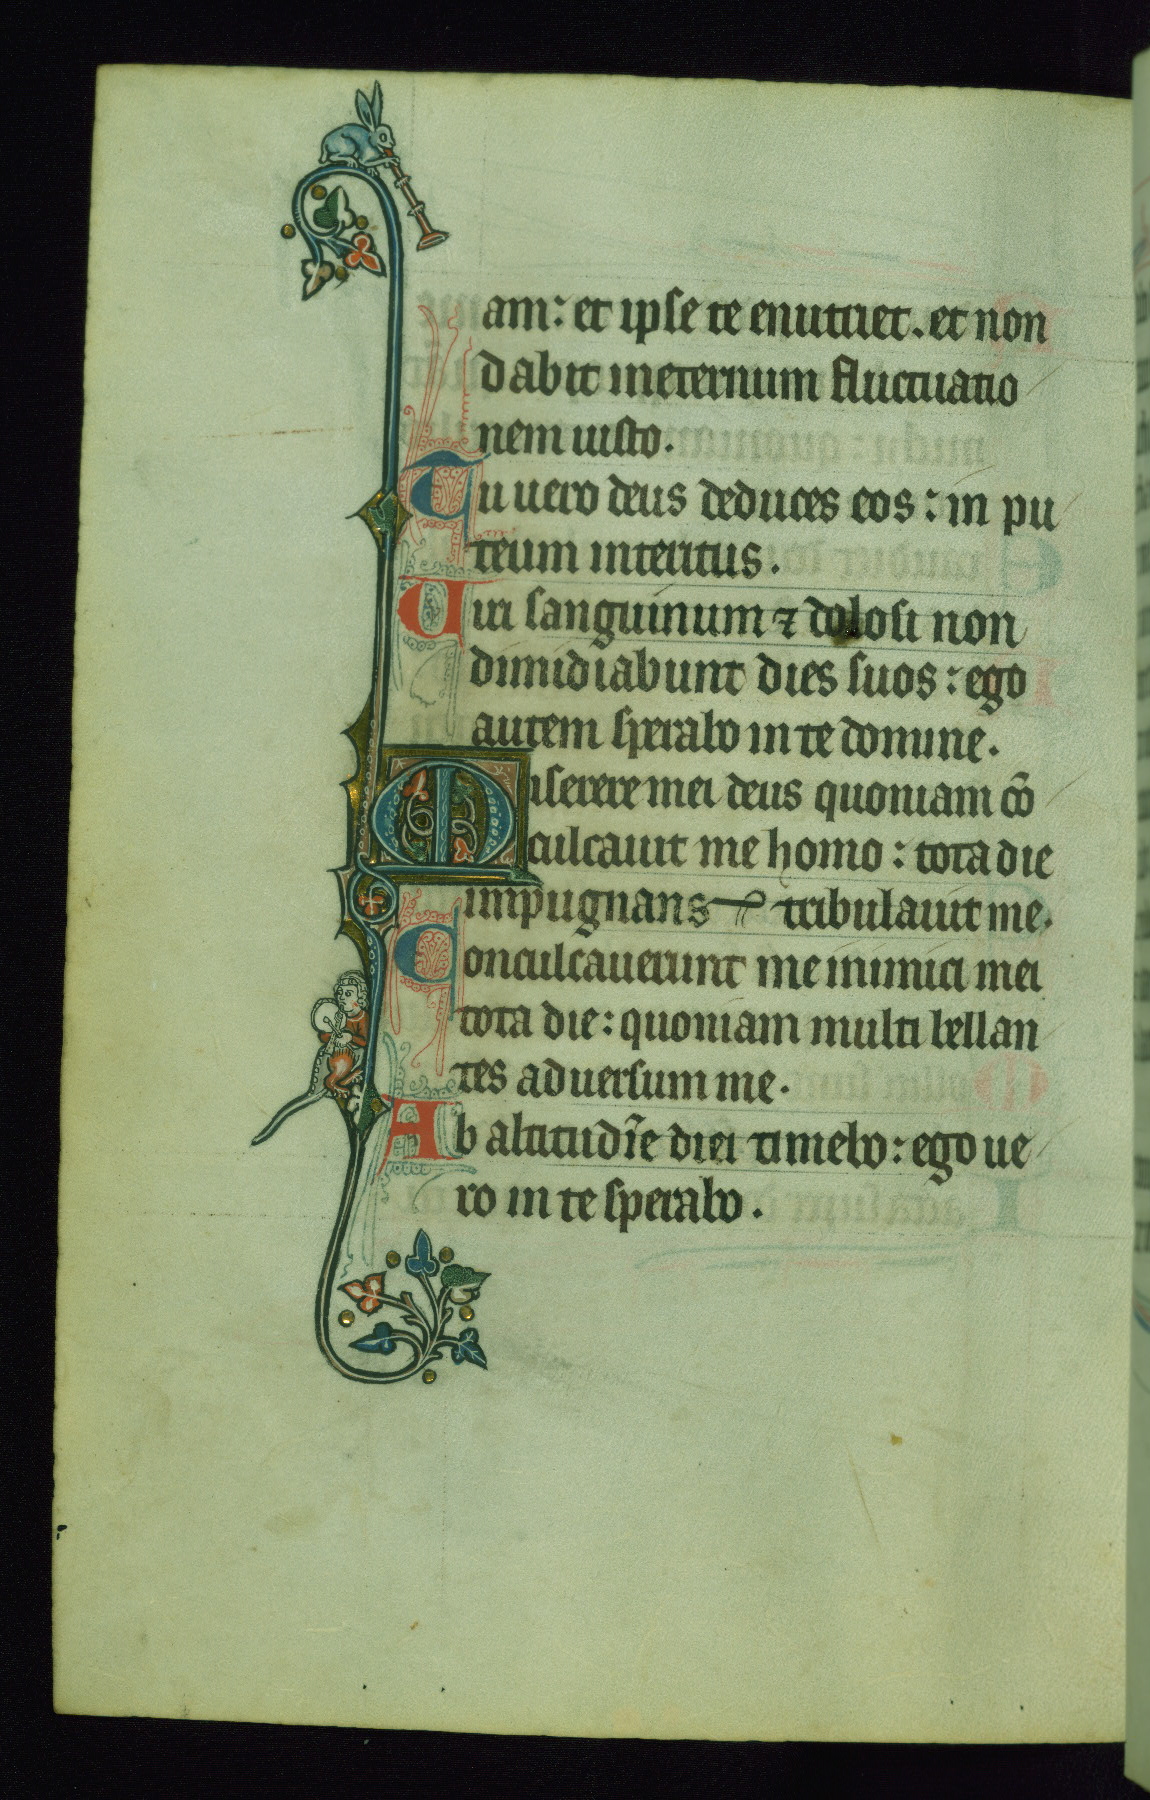 am: et ipse te enutriet. et non
dabit ineternum fluctuatio
nem iusto.
Tu uero deus deduces eos: in pu
teum interitus.
Uiri sanguinum ⁊ dolosi non
dimidiabunt dies suos: ego
autem sperabo in te domine.
Miserere mei deus quoniam cō
culcauit me homo: tota die
impugnans tribulauit me.
Conculcauerunt me inimici mei
tota die: quoniam multi bellan
tes aduersum me.
Ab altitudīe diei timebo: ego ue
ro in te sperabo.